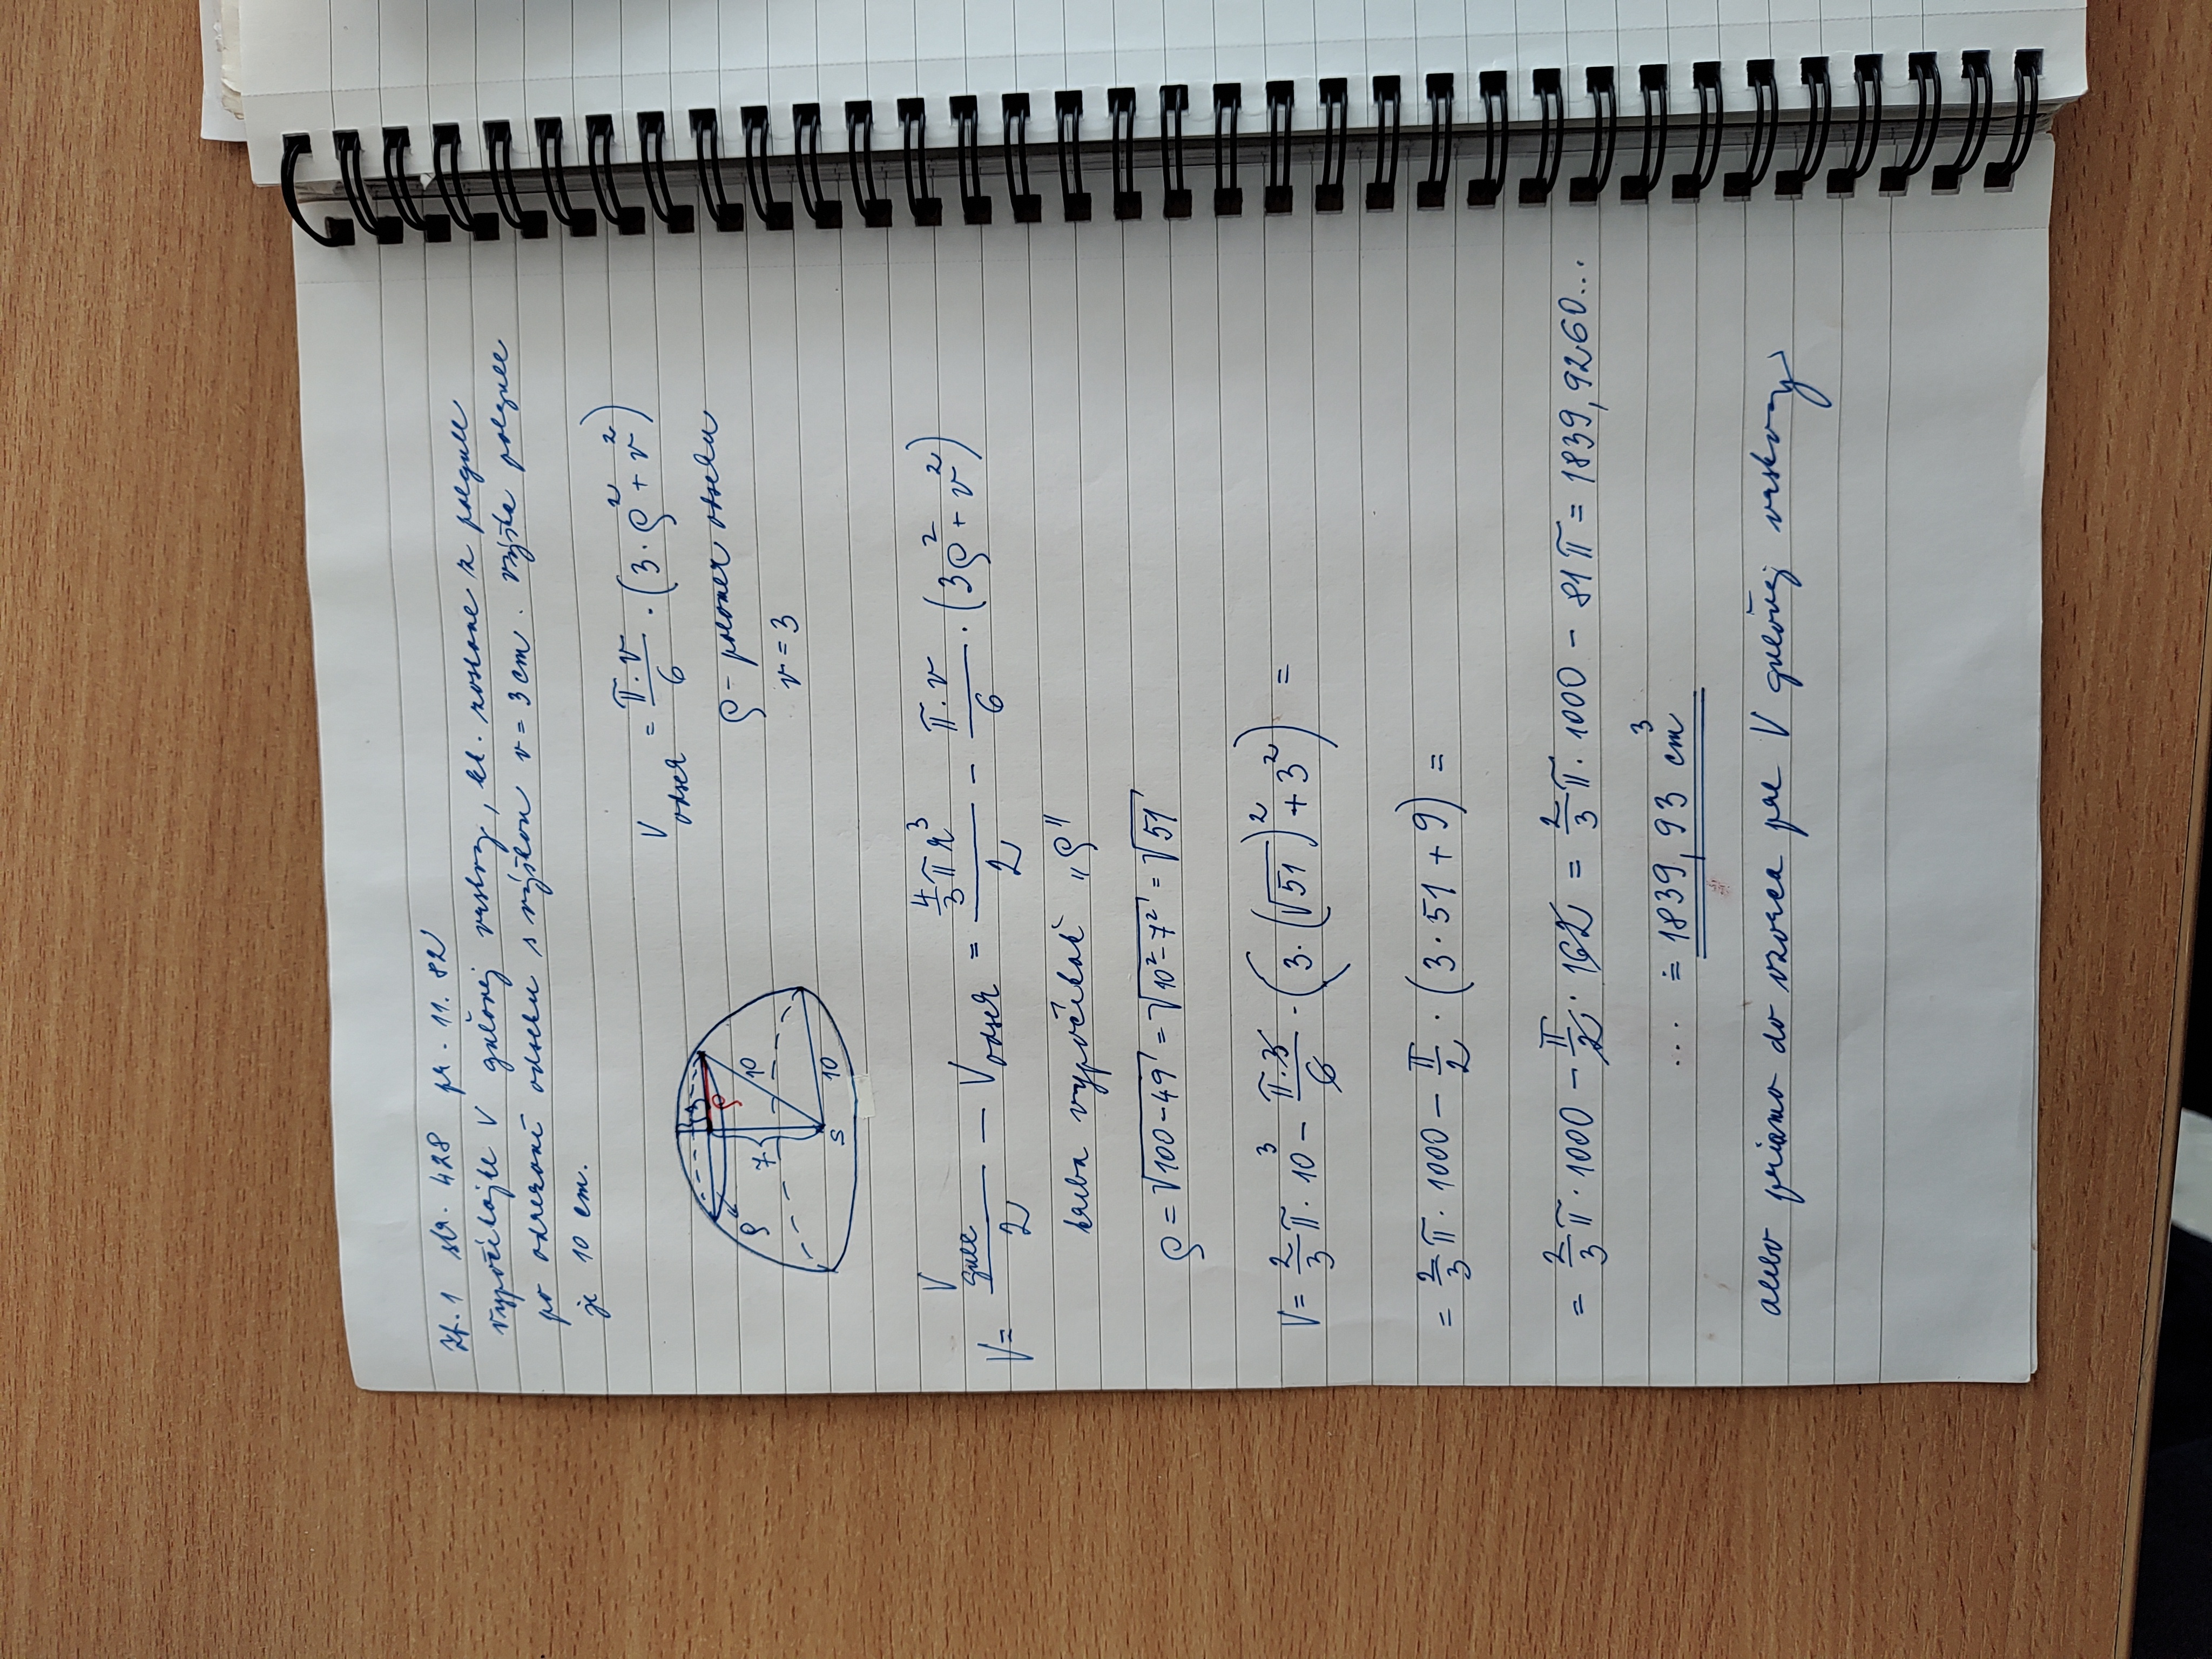 Zb. 1 str. 428 pr. 11. 82
Vypočítajte V guľovej vrstvy, kt. zostane z pologule
po odrezaní odseku s výškou v = 3 cm. výška pologule
je 10 cm.
V odsek = π·v/6 · (3·ρ² + v²)
ρ - polomer odseku
v = 3
3
ρ
ρ
7
10
10
S
V = V gule/2 − V odsek = 4/3 π r³/2 − π·v/6 · (3ρ² + v²)
treba vypočítať „ρ"
ρ = √100-49 = √10²-7² = √51
V = 2/3 π · 10³ − π·3/6 · (3·(√51)² + 3²) =
= 2/3 π · 1000 − π/2 · (3·51 + 9) =
= 2/3 π · 1000 − π/2 · 162 = 2/3 π · 1000 − 81π = 1839,9260...
... ≐ 1839,93 cm³
alebo priamo do vzorca pre V guľovej vrstvy